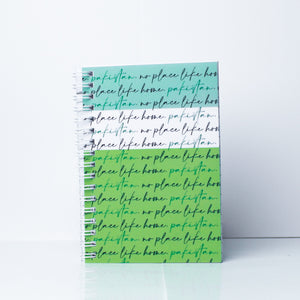 pakistan. no place like hom
place like home. pakistan.
pakistan. no place like hom
place like home. pakistan.
pakistan. no place like hom
place like home. pakistan.
pakistan. no place like hom
place like home. pakistan.
pakistan. no place like hom
place like home. pakistan.
pakistan. no place like hom
place like home. pakistan.
pakistan. no place like hom
place like home. pakistan.